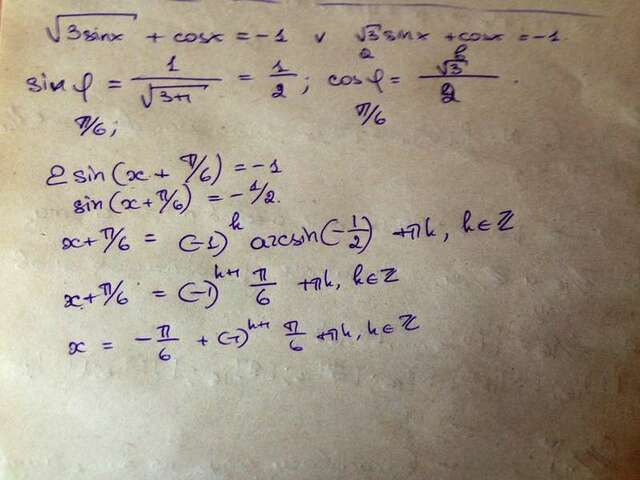 √3sinx + cosx = -1 ∨ √3/2 sinx + cosx = -1.
sin φ = 1/√3+1 = 1/2; cos φ = √3/2.
π/6; π/6
2 sin(x + π/6) = -1
sin(x + π/6) = -1/2.
x + π/6 = (-1)^k arcsin(-1/2) + πk, k∈ℤ
x + π/6 = (-1)^k+1 π/6 + πk, k∈ℤ
x = -π/6 + (-1)^k+1 π/6 + πk, k∈ℤ